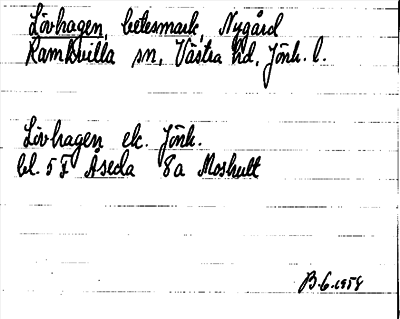 Lövhagen, betesmark, Nygård
Ramkvilla sn, Västra hd, Jönk. l.
Lövhagen ek. Jönk.
bl. 5 F Åseda 8a Moshult
B.G. 1958